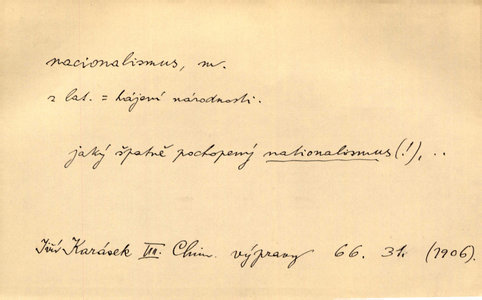 nacionalismus, m.
z lat. = hájení národnosti.
jaký špatně pochopený nationalismus (!), ..
Jiří Karásek III. Chim. výpravy 66. 31. (1906).